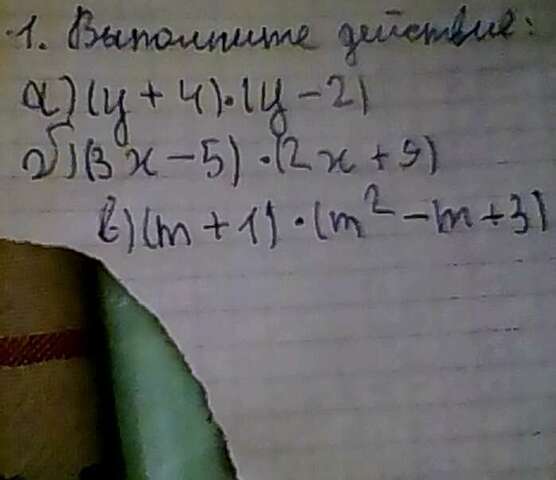 1. Выполните действие:
а) (y + 4) · (y - 2)
2б) (3x - 5) · (2x + 5)
в) (m + 1) · (m² - m + 3)